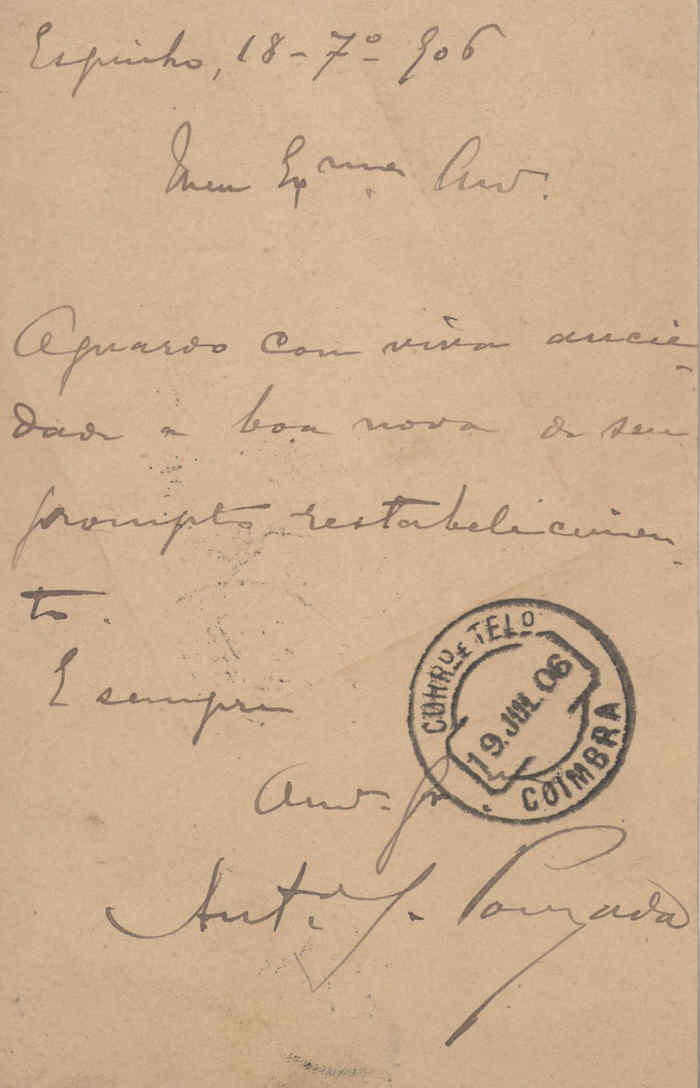 Espinho, 18-7º-906
Meu Ex.mo Am.º
Aguardo com viva ancie-
dade a boa nova do seu
prompto restabelecimen-
to.
E sempre
Am.º
Ant.º J. Pouzada
CORRO E TELO
19.JUL.06
COIMBRA